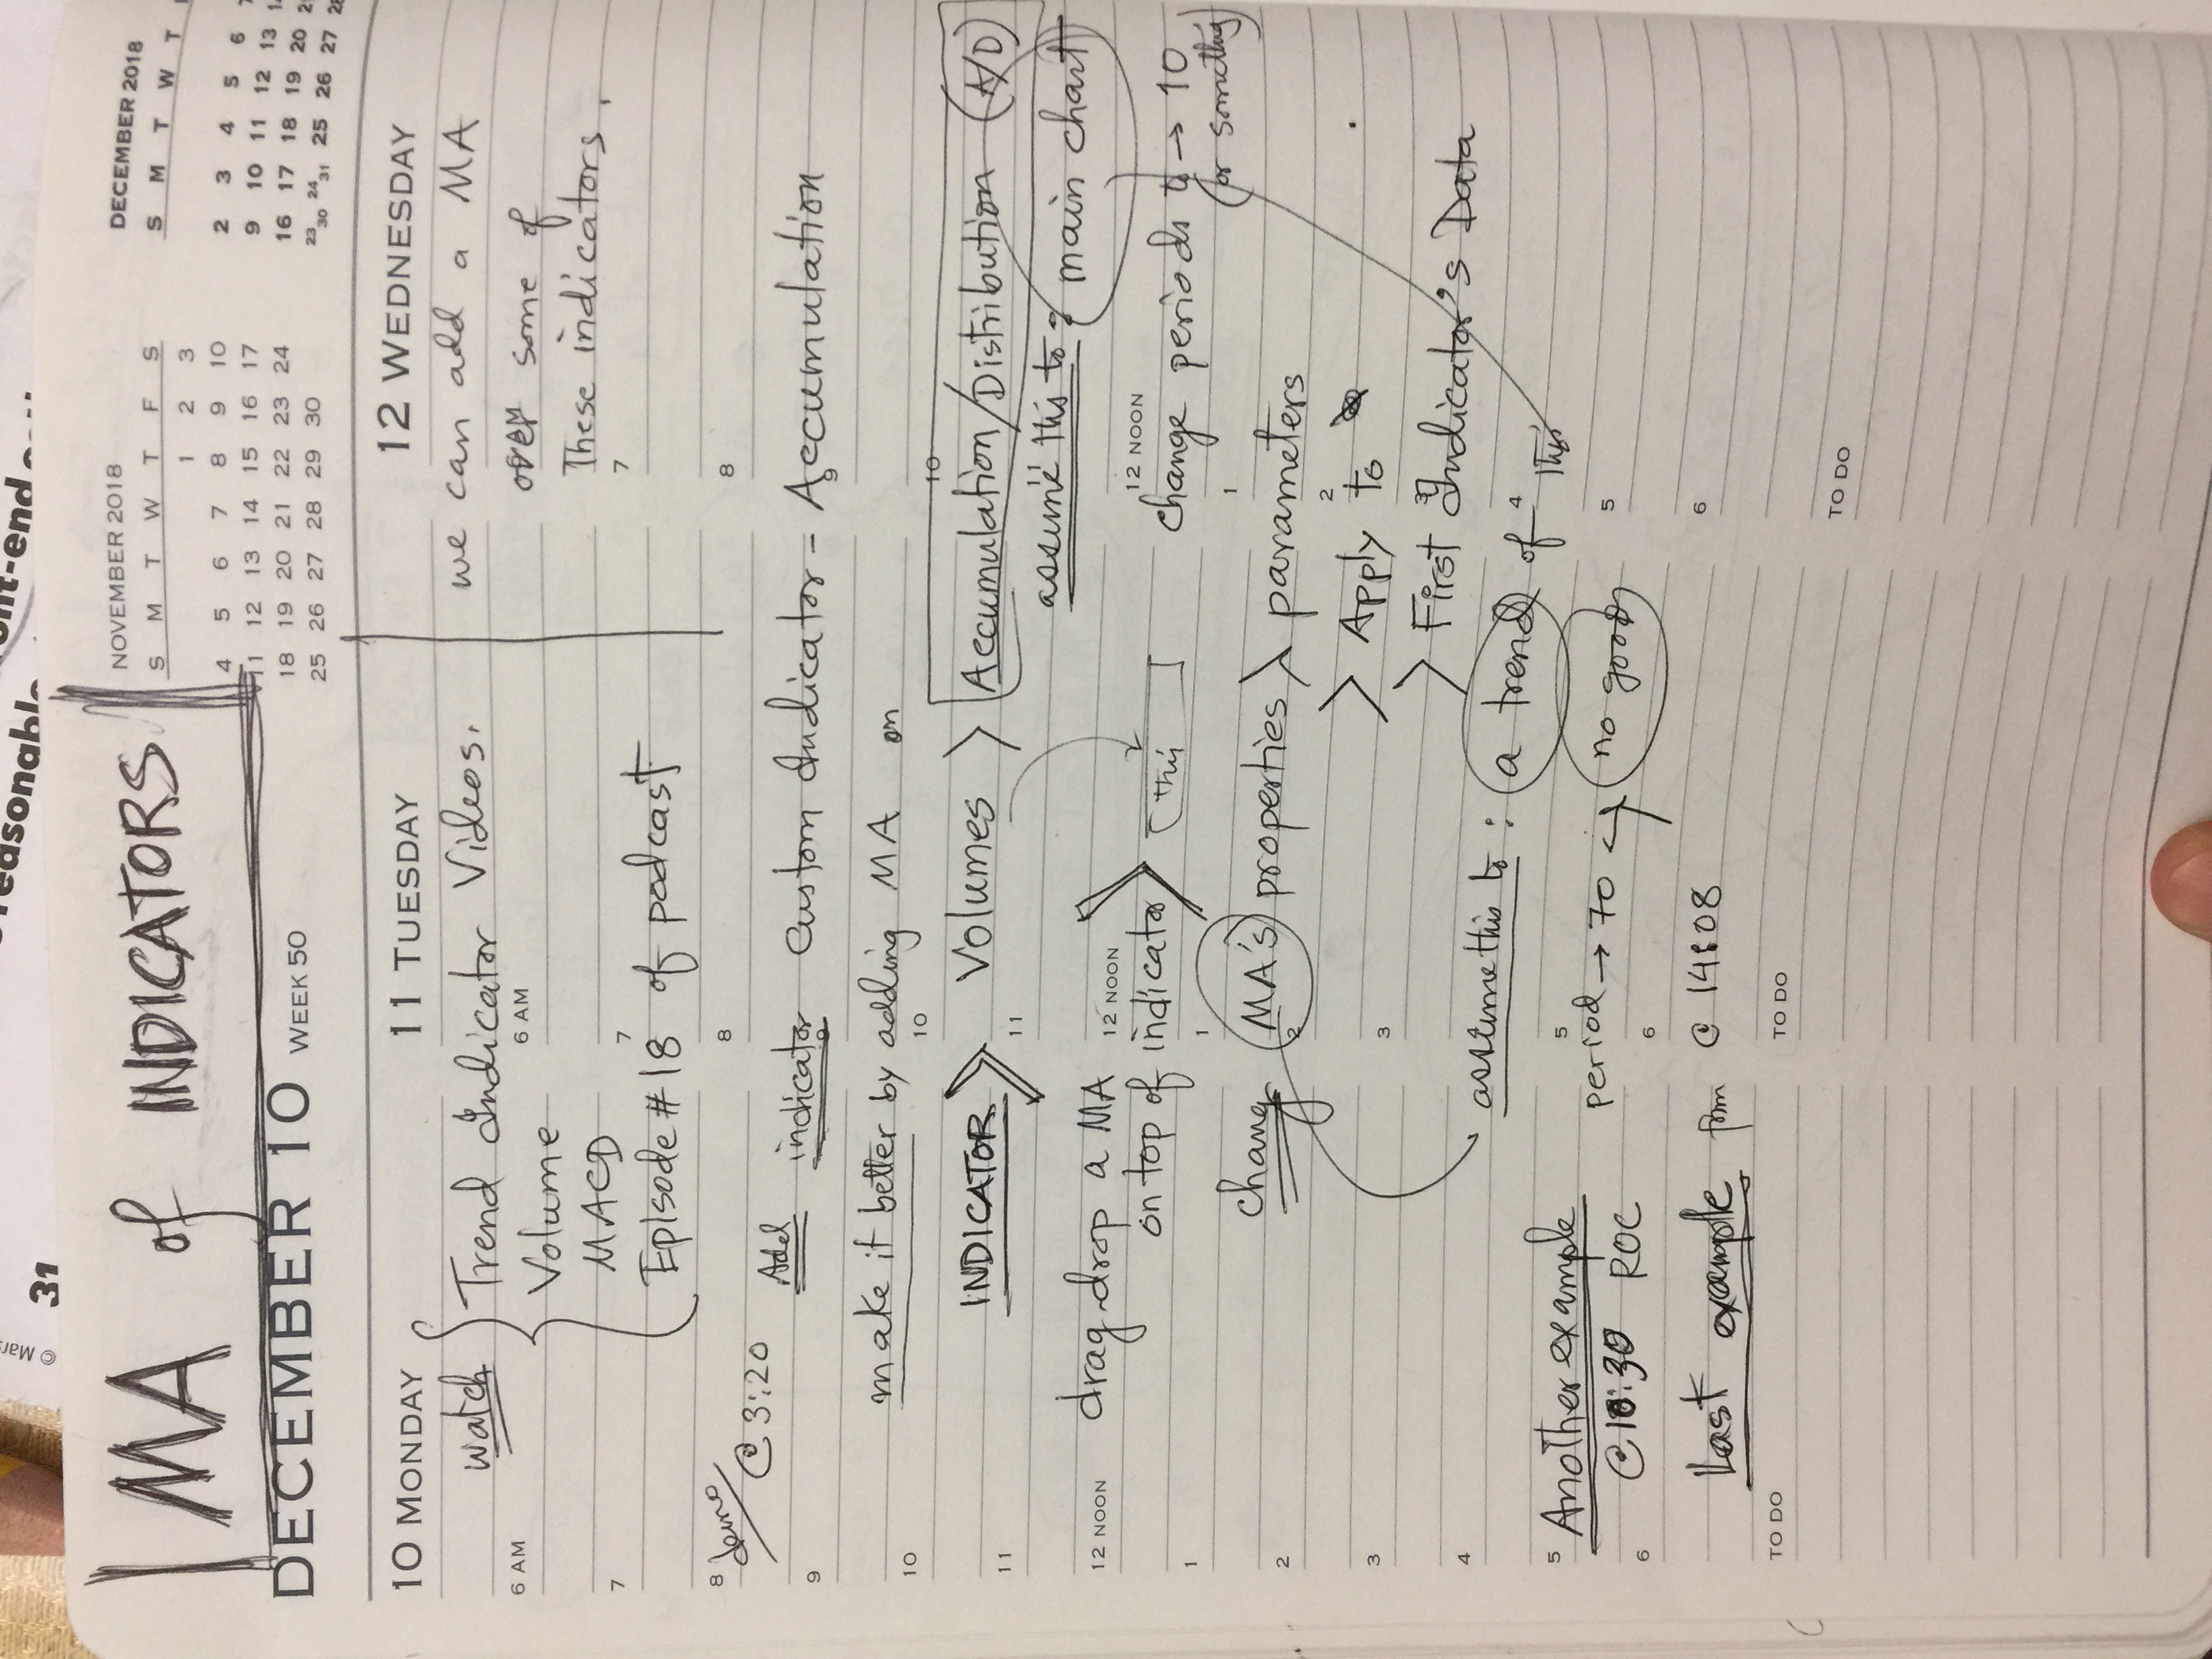 31
© Mar
reasonable
MA of INDICATORS
NOVEMBER 2018
S M T W T F S
1 2 3
4 5 6 7 8 9 10
11 12 13 14 15 16 17
18 19 20 21 22 23 24
25 26 27 28 29 30
DECEMBER 2018
S M T W T
2 3 4 5 6
9 10 11 12 13
16 17 18 19 20
23/30 24/31 25 26 27
DECEMBER 10 WEEK 50
10 MONDAY
11 TUESDAY
12 WEDNESDAY
watch { Trend Indicator Videos.
Volume
MACD
Episode #18 of podcast
we can add a MA
over some of
These indicators.
6 AM 6 AM 6 AM
7 7 7
8 8 8
demo @ 3:20
Add indicator Custom Indicator - Accumulation
9 9 9
make it better by adding MA on
10 10 10
INDICATOR > Volumes > Accumulation/Distribution (A/D)
11 11 11
assume this to : main chart
drag-drop a MA
on top of indicator > this
12 NOON 12 NOON 12 NOON
change periods to → 10
(or something)
1 1 1
chang MA's properties > parameters
2 2 2
> Apply to
3 3 3
> First Indicator's Data
4 4
assume this to : a trend of this
5 5 5
Another example
@ 10:30 ROC
period → 70 no good
6 6 6
Last example from @ 14:08
TO DO TO DO TO DO